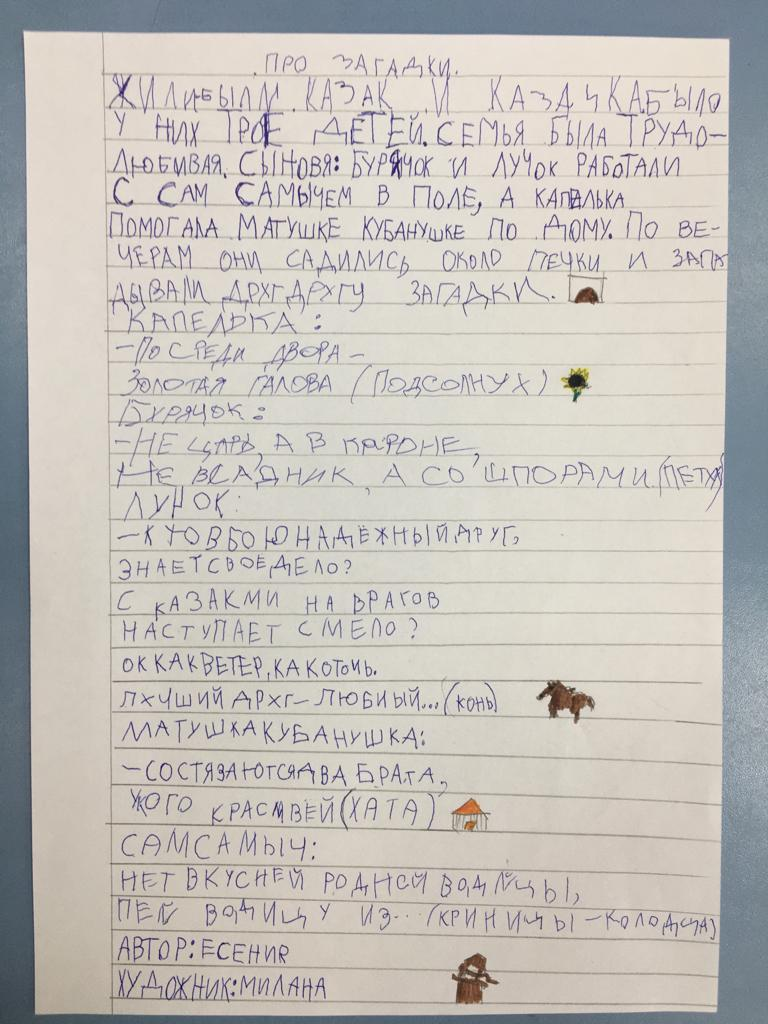 ПРО ЗАГАДКИ.
ЖИЛИ БЫЛИ КАЗАК И КАЗАЧКА. БЫЛО
У НИХ ТРОЕ ДЕТЕЙ. СЕМЬЯ БЫЛА ТРУДО-
ЛЮБИВАЯ. СЫНОВЯ: БУРЯЧОК И ЛУЧОК РАБОТАЛИ
С САМ САМЫЧЕМ В ПОЛЕ, А КАПЕЛЬКА
ПОМОГАЛА МАТУШКЕ КУБАНУШКЕ ПО ДОМУ. ПО ВЕ-
ЧЕРАМ ОНИ САДИЛИСЬ ОКОЛО ПЕЧКИ И ЗАГА
ДЫВАЛИ ДРУГ ДРУГУ ЗАГАДКИ.
КАПЕЛЬКА:
-ПОСРЕДИ ДВОРА-
ЗОЛОТАЯ ГАЛОВА (ПОДСОЛНУХ)
БУРЯЧОК:
-НЕ ЦАРЬ, А В КАРОНЕ,
НЕ ВСАДНИК, А СО ШПОРАМИ. (ПЕТУХ)
ЛУЧОК:
-КТО В БОЮ НАДЁЖНЫЙ ДРУГ,
ЗНАЕТ СВОЕ ДЕЛО?
С КАЗАКМИ НА ВРАГОВ
НАСТУПАЕТ СМЕЛО?
ОК КАК ВЕТЕР, КАК ОГОНЬ.
ЛУЧШИЙ ДРУГ-ЛЮБИЫЙ...(КОНЬ)
МАТУШКА КУБАНУШКА:
-СОСТЯЗАЮТСЯ ДВА БРАТА,
У КОГО КРАСИВЕЙ (ХАТА)
САМ САМЫЧ:
НЕТ ВКУСНЕЙ РОДНОЙ ВОДИЦЫ,
ПЕЙ ВОДИЦУ ИЗ... (КРИНИЦЫ-КОЛОДЦА)
АВТОР: ЕСЕНИЯ
ХУДОЖНИК: МИЛАНА